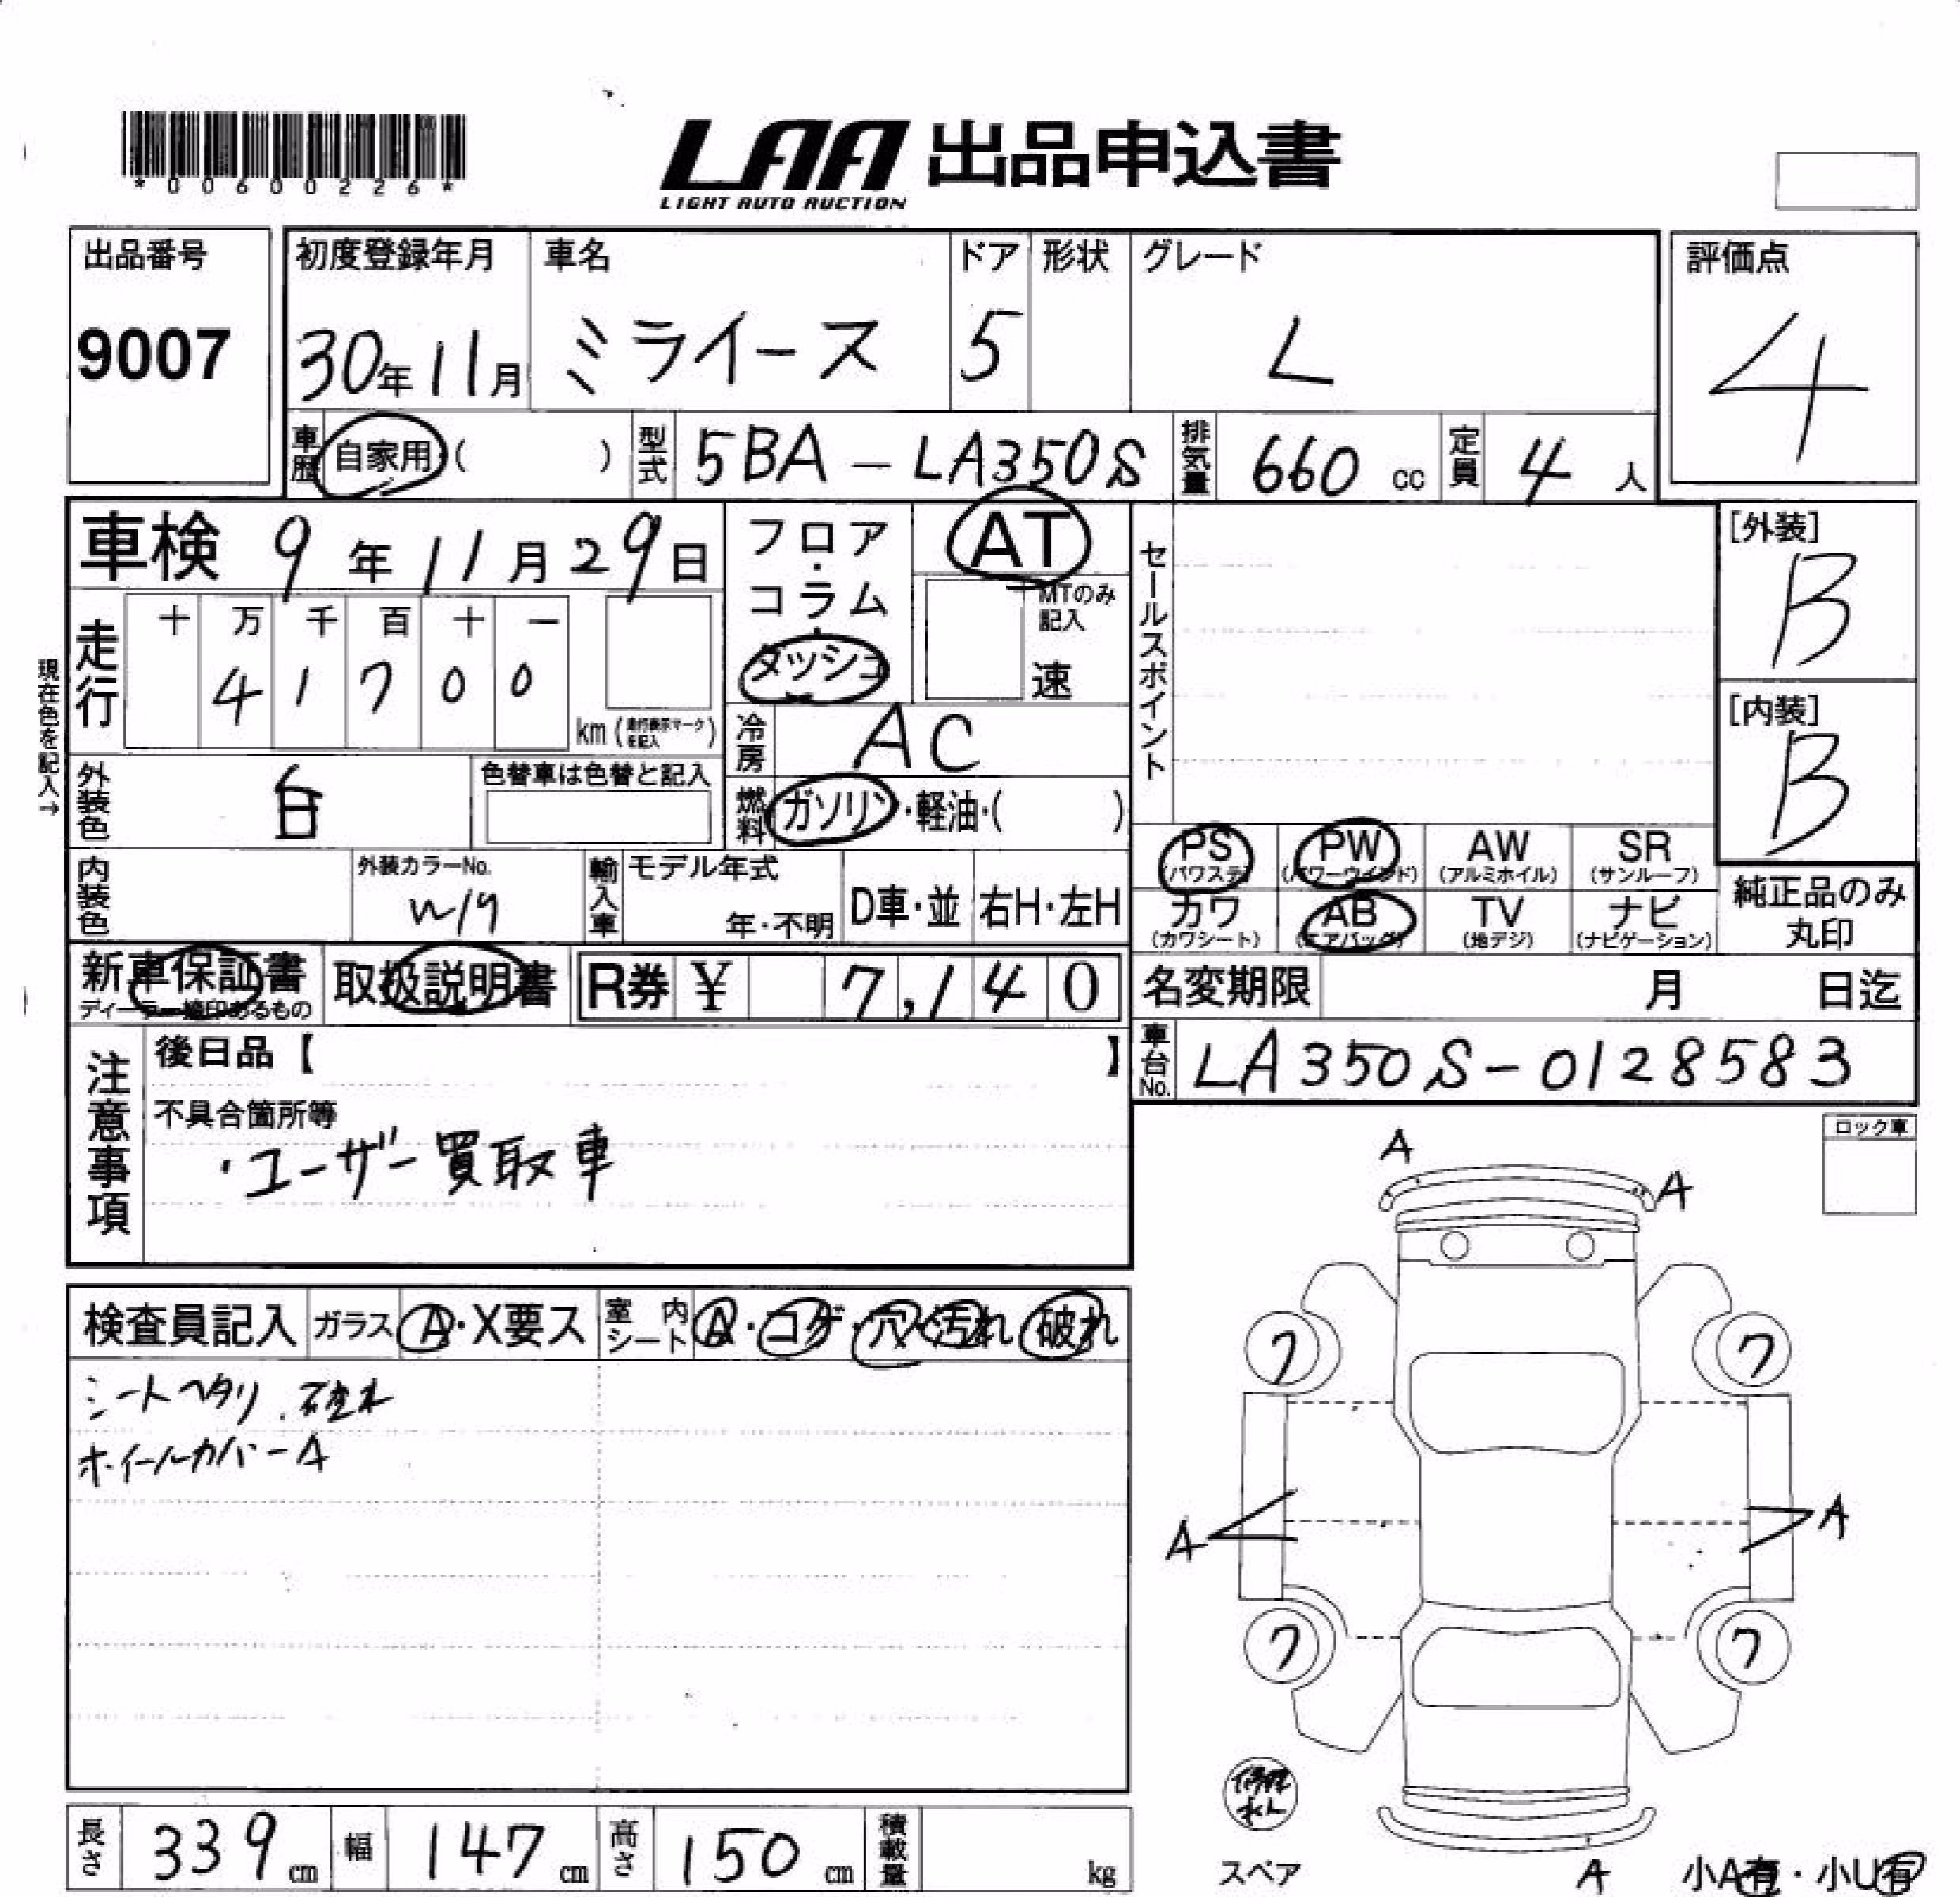 *00600226*
LAA 出品申込書
LIGHT AUTO AUCTION
出品番号
9007
初度登録年月
30年11月
車名
ミライース
ドア
5
形状
グレード
L
評価点
4
車歴 自家用 ( )
型式 5BA-LA350S
排気量 660 cc
定員 4 人
車検 9年11月29日
フロア・コラム・ダッシュ
AT
MTのみ記入
速
セールスポイント
[外装]
B
[内装]
B
現在色を記入→
走行 十 万 千 百 十 一
4 1 7 0 0
km (走行表示マークを記入)
冷房 AC
外装色 白
色替車は色替と記入
燃料 ガソリン・軽油・( )
PS (パワステ) PW (パワーウインド) AW (アルミホイル) SR (サンルーフ)
カワ (カワシート) AB (エアバッグ) TV (地デジ) ナビ (ナビゲーション)
純正品のみ丸印
内装色
外装カラーNo.
W19
輸入車
モデル年式
年・不明
D車・並
右H・左H
新車保証書
ディーラー捺印あるもの
取扱説明書
R券 ¥ 7,140
名変期限 月 日迄
車台No. LA350S-0128583
注意事項
後日品【 】
不具合箇所等
・ユーザー買取車
ロック車
A
A
検査員記入
ガラス A・X要ス
室内シート A・コゲ・穴・汚れ・破れ
シートヘタリ、破れ
ホイールカバーA
ワ ワ
A A
ワ ワ
スペア
長さ 339 cm
幅 147 cm
高さ 150 cm
積載量 kg
A
小A有・小U有